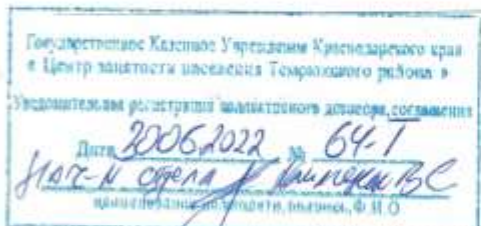 Государственное Казенное Учреждение Краснодарского края
« Центр занятости населения Темрюкского района »
Уведомительная регистрация коллективного договора, соглашения
Дата 30062022 № 64-Т
Нач-к отдела ВС
наименование должности, подпись, Ф.И.О